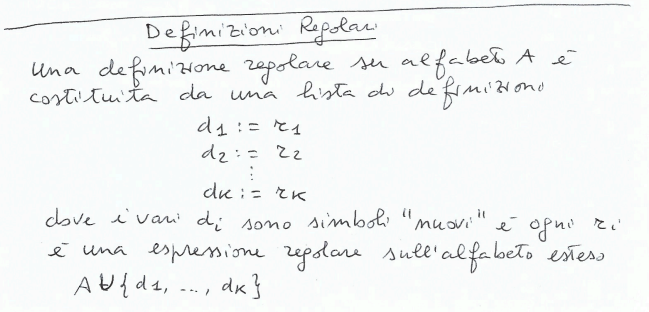 Definizioni Regolari
Una definizione regolare su alfabeto A è
costituita da una lista di definizioni
d1 := r1
d2 := r2
⋮
dk := rk
dove i vari di sono simboli "nuovi" e ogni ri
è una espressione regolare sull'alfabeto esteso
A ∪ {d1, ..., dk}